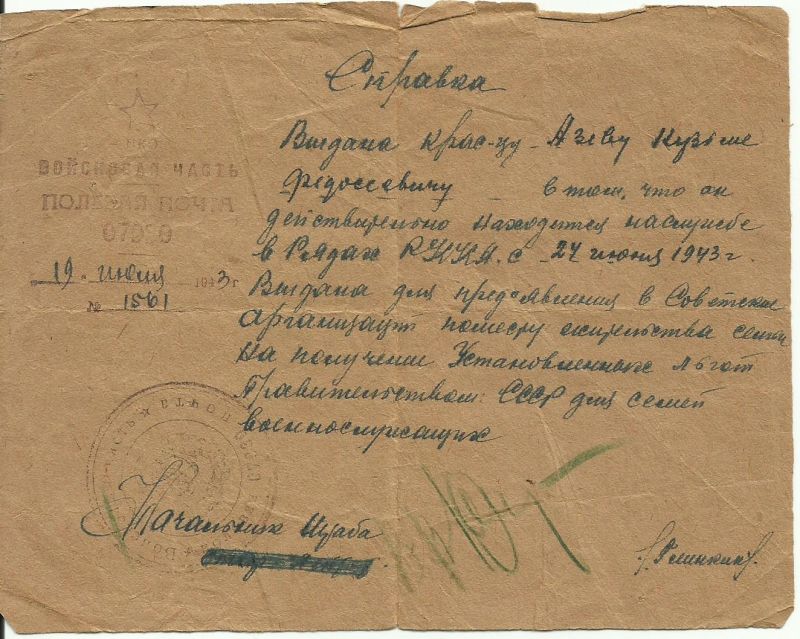 Справка
НКО
ВОЙСКОВАЯ ЧАСТЬ
ПОЛЕВАЯ ПОЧТА
19 июля 1943 г
№ 1561
Выдана крас-цу Азеву Кузьме
Федосеевичу в том, что он
действительно находится наслужбе
в Рядах РККА. с 24 июня 1943 г.
Выдана для предоявления в Советские
организации поместу жительства семьи
На получение Установленных льгот
Правительством: СССР для семей
военнослужащих
Начальник Штаба